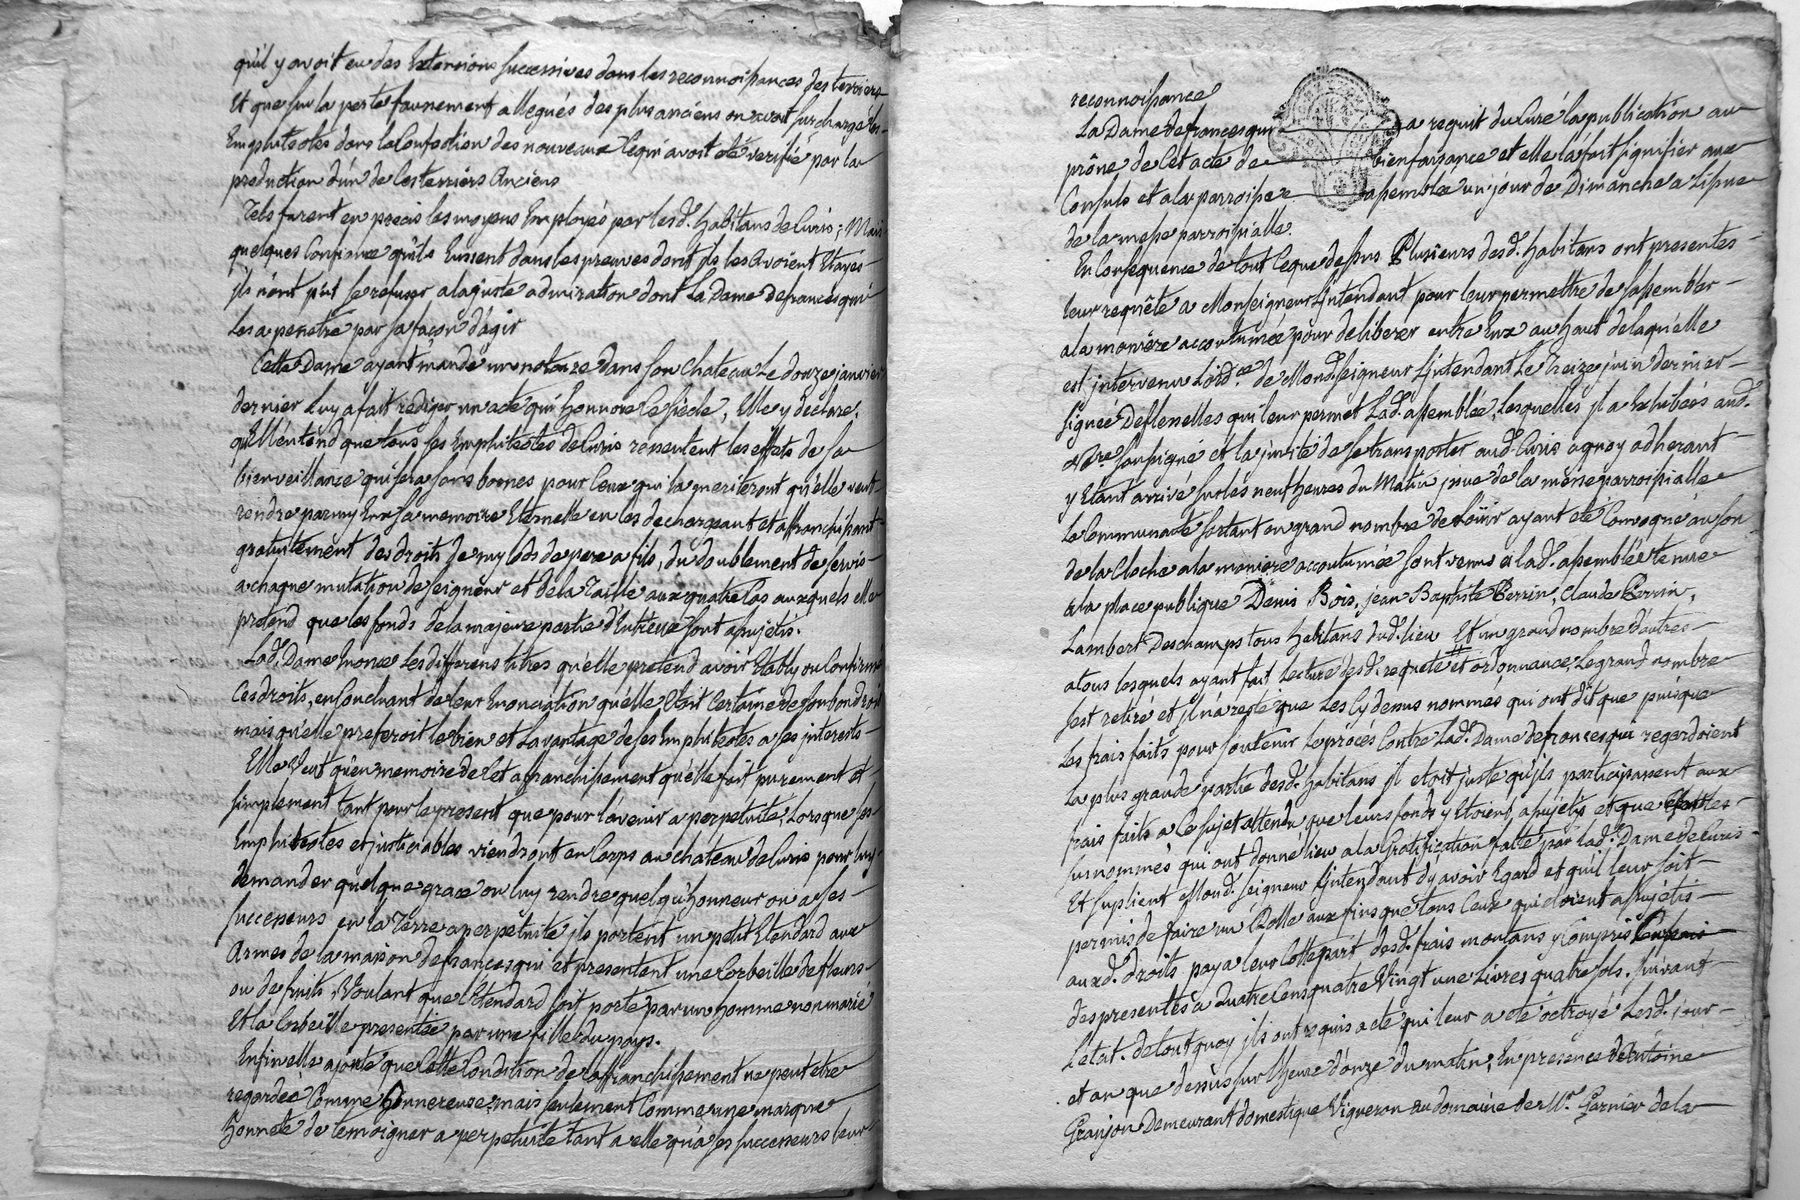 qu'il y avoit eu des Extensions successives dans les reconnoissances des terriers
Et que sur la perte faussement allegués des plus anciens on avoit surchargé les
Emphiteotes dans la Confection des nouveaux Ce qui avoit eté verifié par la
production d'un de Ces terriers Anciens
Tels furent en precis les moyens Employés par lesd. habitans de Curis; Mais
quelques Confiance qu'ils Eussent dans les preuves dont ils les avoient Etayés
ils n'ont put se refuser a la juste admiration dont La Dame Defrancesqui
Les a penetré par sa façon d'agir
Cette Dame ayant mandé un notaire dans son Chateau Le douze janvier
dernier Luy a fait rediger un acte qui honnore Ce siecle, Elle y declare
qu'Ell'entend que tous ses Emphiteotes de Curis ressentent les effets de sa
bienveillance qui sera sans bornes pour Ceux qui la meriteront qu'elle veut
rendre parmy Eux sa memoire Eternelle en les dechargeant et affranchissant
gratuitement des droits de my lods de pere a fils, du doublement de servis
a chaque mutation de seigneur et de la Taille aux quatre Cas auxquels elle
pretend que les fonds de la majeure partie d'Entreux sont assujetis.
Lad. Dame Enonce Les differens titres qu'elle pretend avoir Etably ou Confirmé
Ces droits, en Concluant de leur Enonciation qu'elle Etoit Certaine de son bon droit
mais qu'elle preferoit le bien et L'avantage de ses Emphiteotes a ses interests
Elle Veut qu'en memoire de Cet affranchissement qu'elle fait purement et
simplement tant pour le present que pour l'avenir a perpetuité, Lorsque ses
Emphiteotes et justiciables viendront en Corps au château de Curis pour luy
demander quelque grace ou luy rendre quelqu'honneur ou a ses
successeurs en la Terre a perpetuité ils portent un petit Etendard aux
Armes de la maison de francesqui et presentent une Corbeille de fleurs
ou de fruits, Voulant que l'Etendard soit porté par un homme non marié
Et la Corbeille presentée par une fille du pays.
Enfin elle ajoute que Cette Condition de l'affranchissement ne peut etre
regardée Comme honnereuse, mais seulement Comme une marque
honnete de temoigner a perpetuité tant a elle qu'a ses successeurs leur
reconnoissance
La Dame de francesqui a requit du Curé la publication au
prône de Cet acte de bienfaisance et elle l'a fait signifier aux
Consuls et a la parroisse assemblée un jour de Dimanche a l'issue
de la messe parroissialle.
En Consequence de tout Ce que dessus Plusieurs desd. habitans ont presentes
leur requête a Monseigneur L'intendant pour leur permettre de s'assembler
a la maniere accoutumée pour deliberer entre Eux au haut de laquelle
est intervenu L'ord.ce de Mond. seigneur L'intendant Le Treize juin dernier
signée Deflesselles qui leur permet Lad. assemblée, Lesquelles il a Exhibées aud.
No.re soussigné et l'a invité de se transporter aud. Curis a quoy adherant
y Etant arrivé sur les neuf heures du Matin issue de la messe parroissialle
La Communauté sortant en grand nombre de l'oüir ayant eté Convoqué au son
de la Cloche a la maniere accoutumée sont venus a lad. assemblée tenue
a la place publique Denis Bois, jean Baptiste Perrin, Claude Perrin,
Lambert Deschamps tous habitans dud. lieu Et un grand nombre d'autres
a tous lesquels ayant fait Lecture desd. requete et ordonnance, Le grand nombre
s'est retiré et il n'a resté que Les Cy dessus nommés qui ont dit que puisque
Les frais faits pour soutenir Le procés Contre Lad. Dame de francesqui regardoient
La plus grande partie desd. habitans il etoit juste qu'ils participassent aux
frais faits a Ce sujet attendu que leurs fonds y Etoient assujetis et que
surnommés qui ont donné lieu a la Gratification faite par lad. Dame de Curis
Et suplient Mond. seigneur L'intendant d'y avoir Egard et qu'il leur soit
permis de faire un Rolle aux fins que tous Ceux qui doient assujetis
auxd. droits paya leur Cottepart desd. frais montans y Compris
des presentes a Quatre Cens quatre Vingt une Livres quatre sols. suivant
L'etat. de tout quoy ils ont requis acte qui leur a eté octroyé Lesd. jour
et an que dessus sur l'heure d'onze du matin, En presence d'Antoine
Granjon Demeurant domestique Vigneron au domaine de Mr. Garnier de la